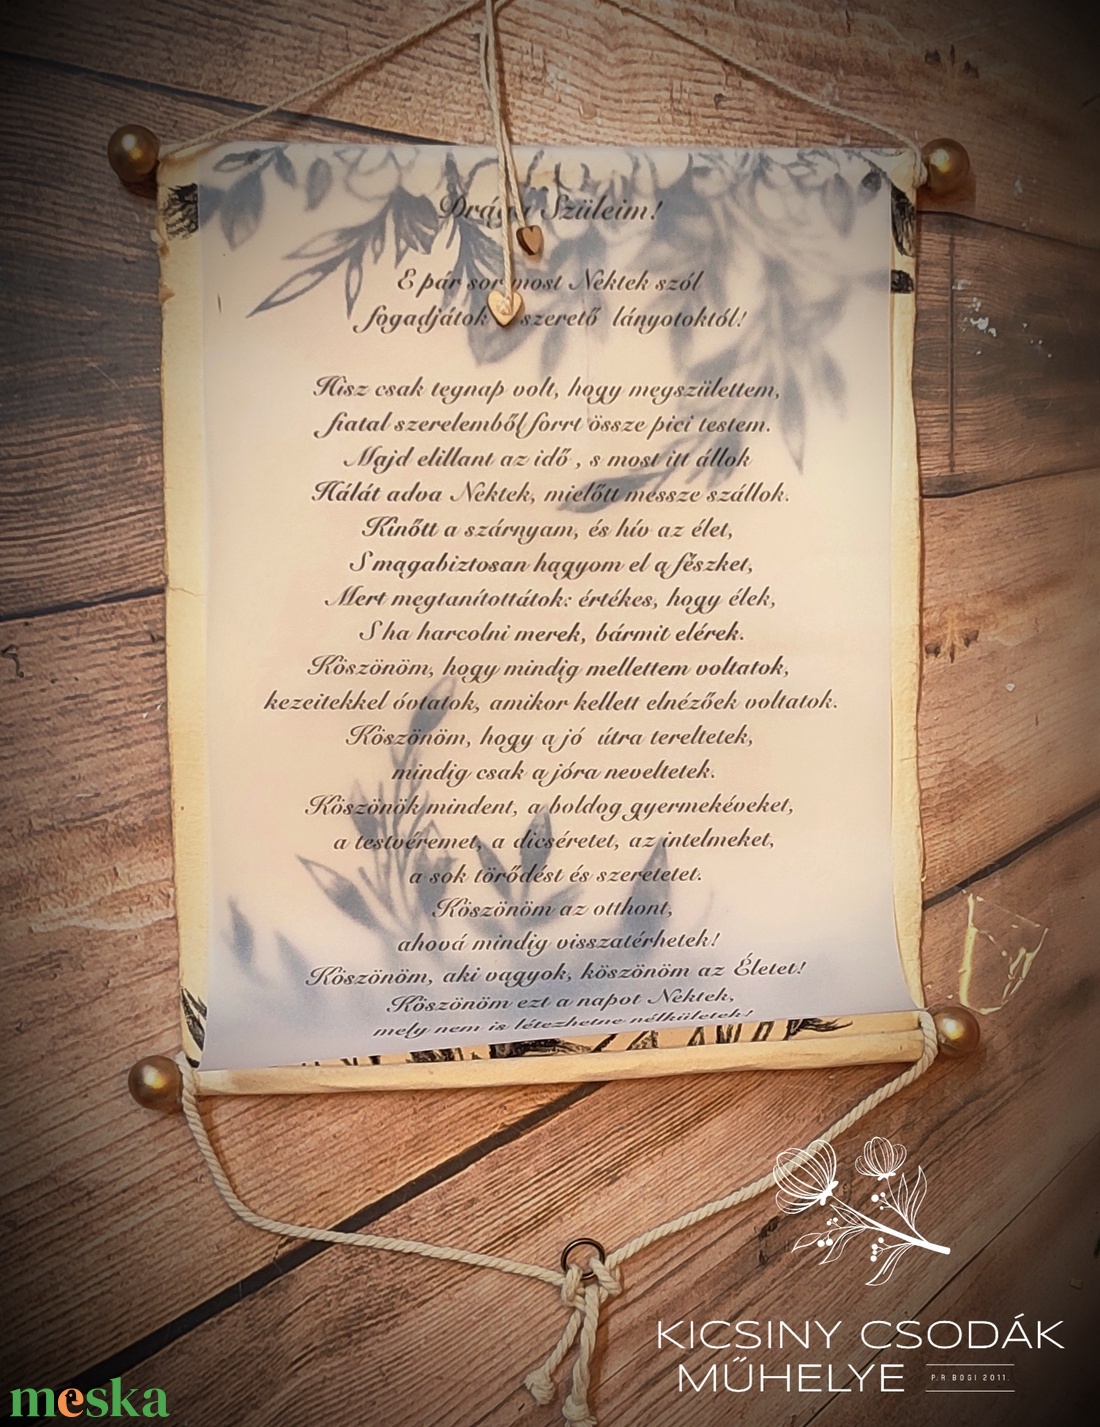 Drága Szüleim!
E pár sor most Nektek szól
fogadjátok szerető lányotoktól!
Hisz csak tegnap volt, hogy megszülettem,
fiatal szerelemből forrt össze pici testem.
Majd elillant az idő , s most itt állok
Hálát adva Nektek, mielőtt messze szállok.
Kinőtt a szárnyam, és hív az élet,
S magabiztosan hagyom el a fészket,
Mert megtanítottátok: értékes, hogy élek,
S ha harcolni merek, bármit elérek.
Köszönöm, hogy mindig mellettem voltatok,
kezeitekkel óvtatok, amikor kellett elnézőek voltatok.
Köszönöm, hogy a jó útra tereltetek,
mindig csak a jóra neveltetek.
Köszönök mindent, a boldog gyermekéveket,
a testvéremet, a dicséretet, az intelmeket,
a sok törődést és szeretetet.
Köszönöm az otthont,
ahová mindig visszatérhetek!
Köszönöm, aki vagyok, köszönöm az Életet!
Köszönöm ezt a napot Nektek,
mely nem is létezhetne nélkületek!
KICSINY CSODÁK
MŰHELYE P.R.BOGI 2011.
meska